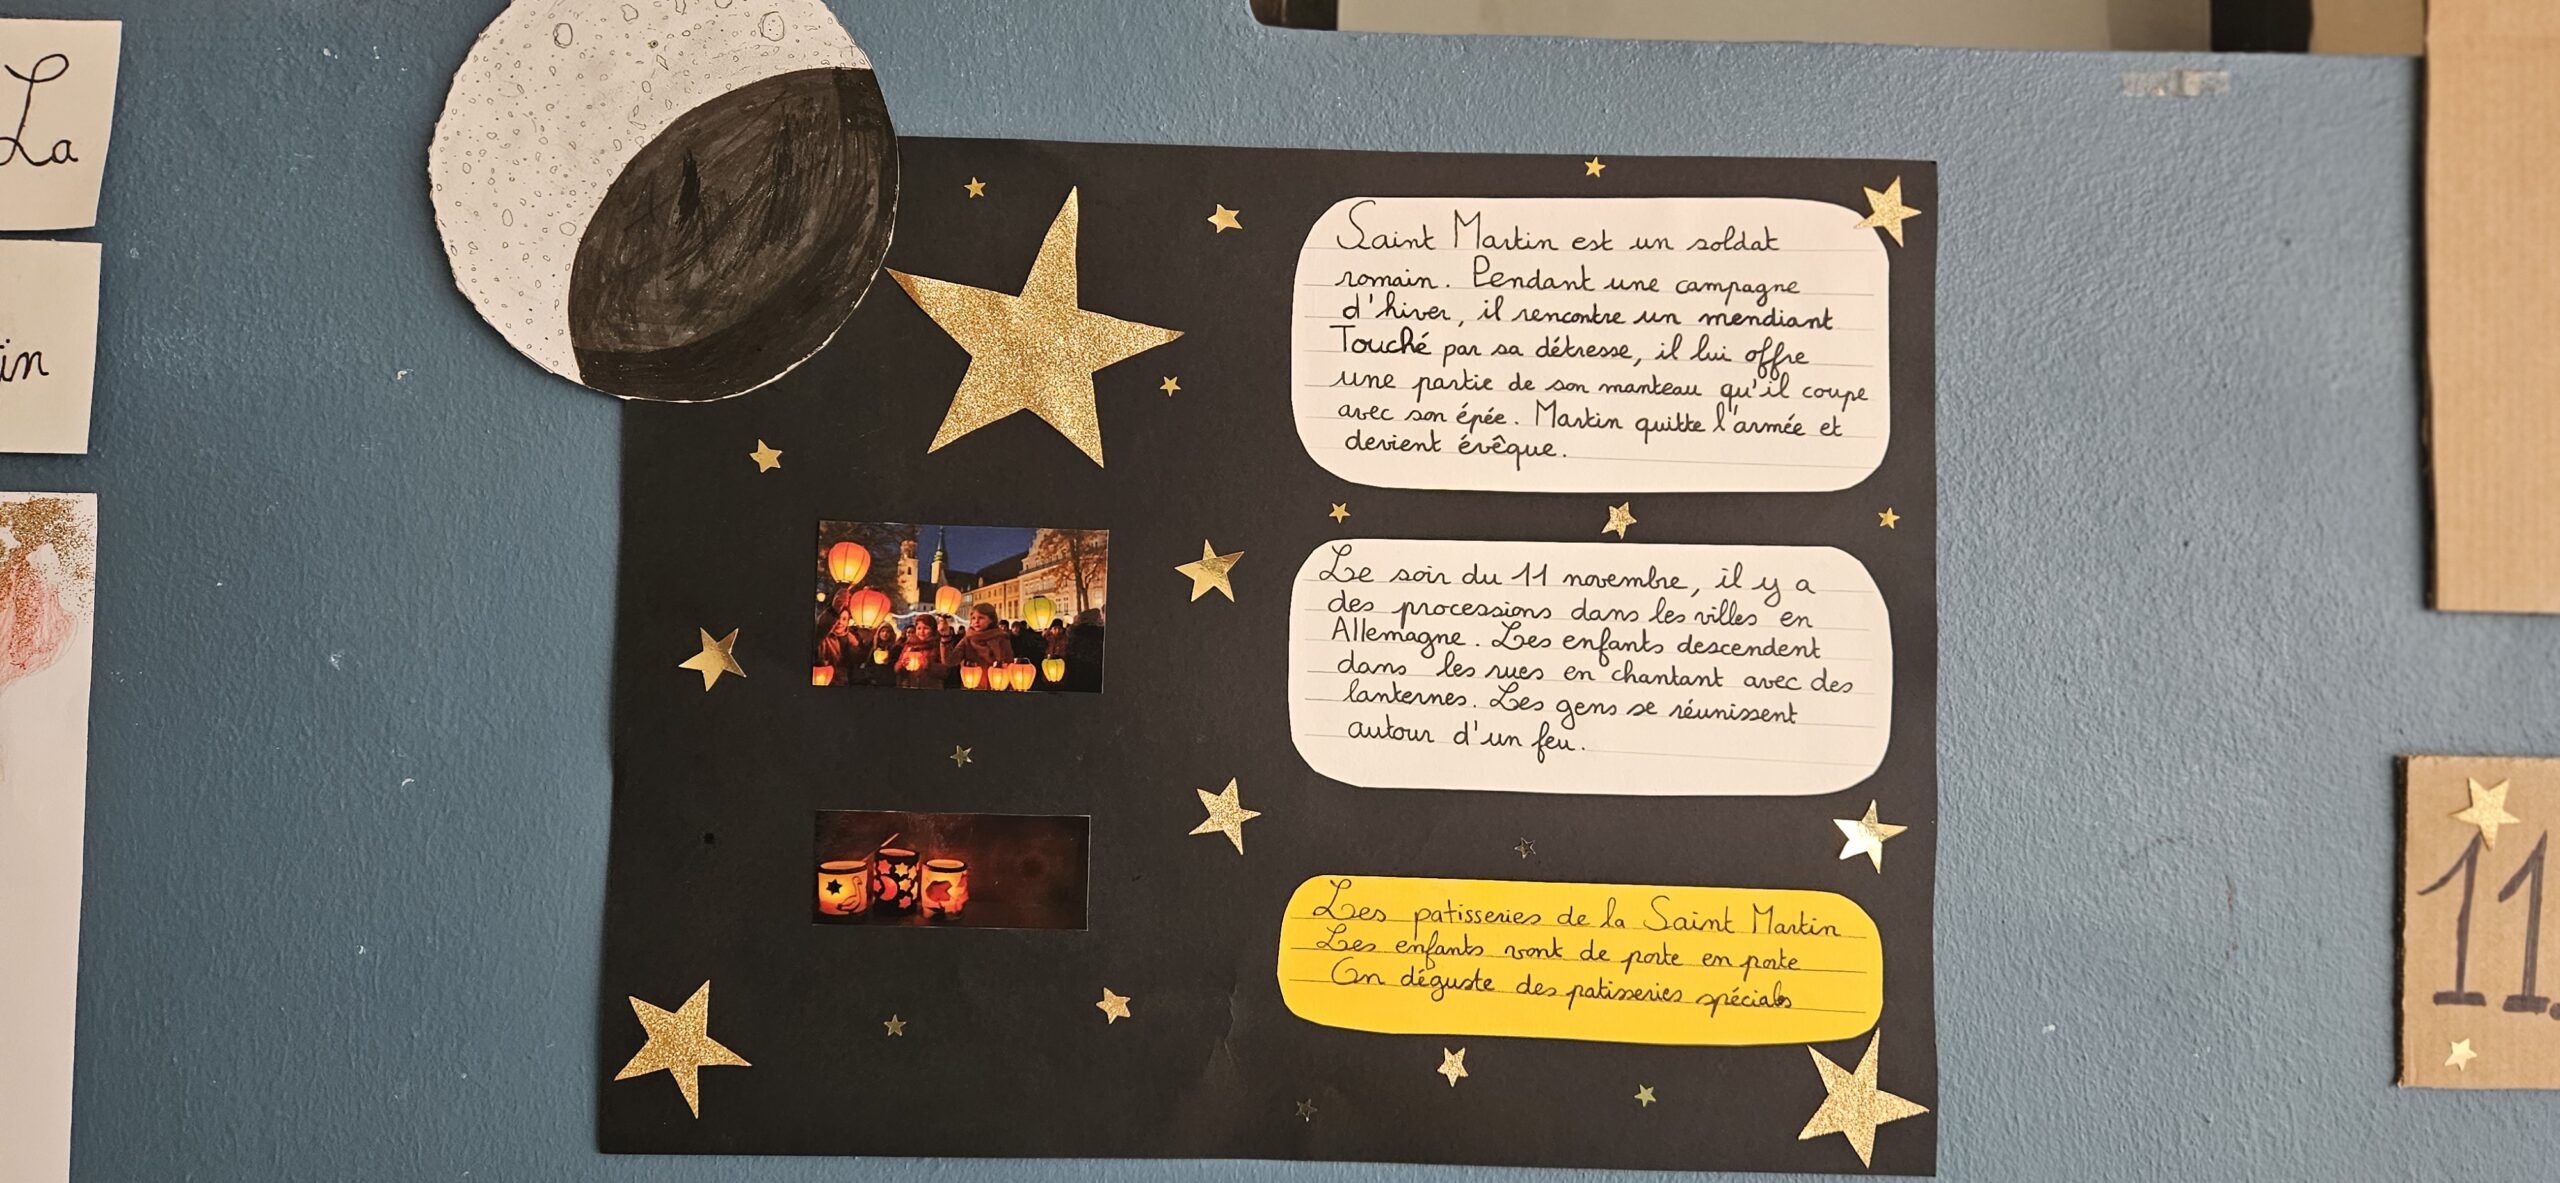 La
in
Saint Martin est un soldat
romain. Pendant une campagne
d'hiver, il rencontre un mendiant
Touché par sa détresse, il lui offre
une partie de son manteau qu'il coupe
avec son épée. Martin quitte l'armée et
devient évêque.
Le soir du 11 novembre, il y a
des processions dans les villes en
Allemagne. Les enfants descendent
dans les rues en chantant avec des
lanternes. Les gens se réunissent
autour d'un feu.
Les patisseries de la Saint Martin
Les enfants vont de porte en porte
On déguste des patisseries spéciales
11.